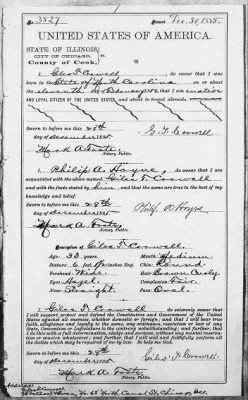 No. 3827 Issued Dec. 30, 1885.
UNITED STATES OF AMERICA.
STATE OF ILLINOIS,
CITY OF CHICAGO,
County of Cook,
I, Giles T. Coswell, do swear that I was born
in State of North Carolina, on or
about eleventh day of February 1852, that I am a native
AND LOYAL CITIZEN OF THE UNITED STATES, and about to travel abroad.
Sworn to before me this 28th
day of December 1885
G. T. Coswell
Mark A. Foote
Notary Public.
I, Philip A. Hoyne, do swear that I am
acquainted with the above named Giles T. Coswell
and with the facts stated by him, and that the same are true to the best of my
knowledge and belief.
Sworn to before me this 28th
day of December 1885
Philip A Hoyne
Mark A. Foote
Notary Public.
Description of Giles T. Coswell.
Age: 33 years Mouth: Medium
Stature: 6 feet inches Eng. Chin: Round
Forehead: Wide Hair: Brown Curly
Eyes: Hazel Complexion: Fair
Nose: Straight Face: Oval
I, Giles T. Coswell do solemnly swear that
I will support, protect and defend the Constitution and Government of the United
States against all enemies, whether domestic or foreign; and that I will bear true
faith, allegiance and loyalty to the same, any ordinance, resolution or law of any
State, Convention or Legislature to the contrary notwithstanding; and further, that
I do this with a full determination, pledge and purpose, without any mental reservation
or evasion whatsoever; and further, that I will well and faithfully perform all
the duties which may be required of me by law. So help me God.
Sworn to before me this 28th
day of December 1885
Giles T. Coswell
Mark A. Foote
Notary Public.